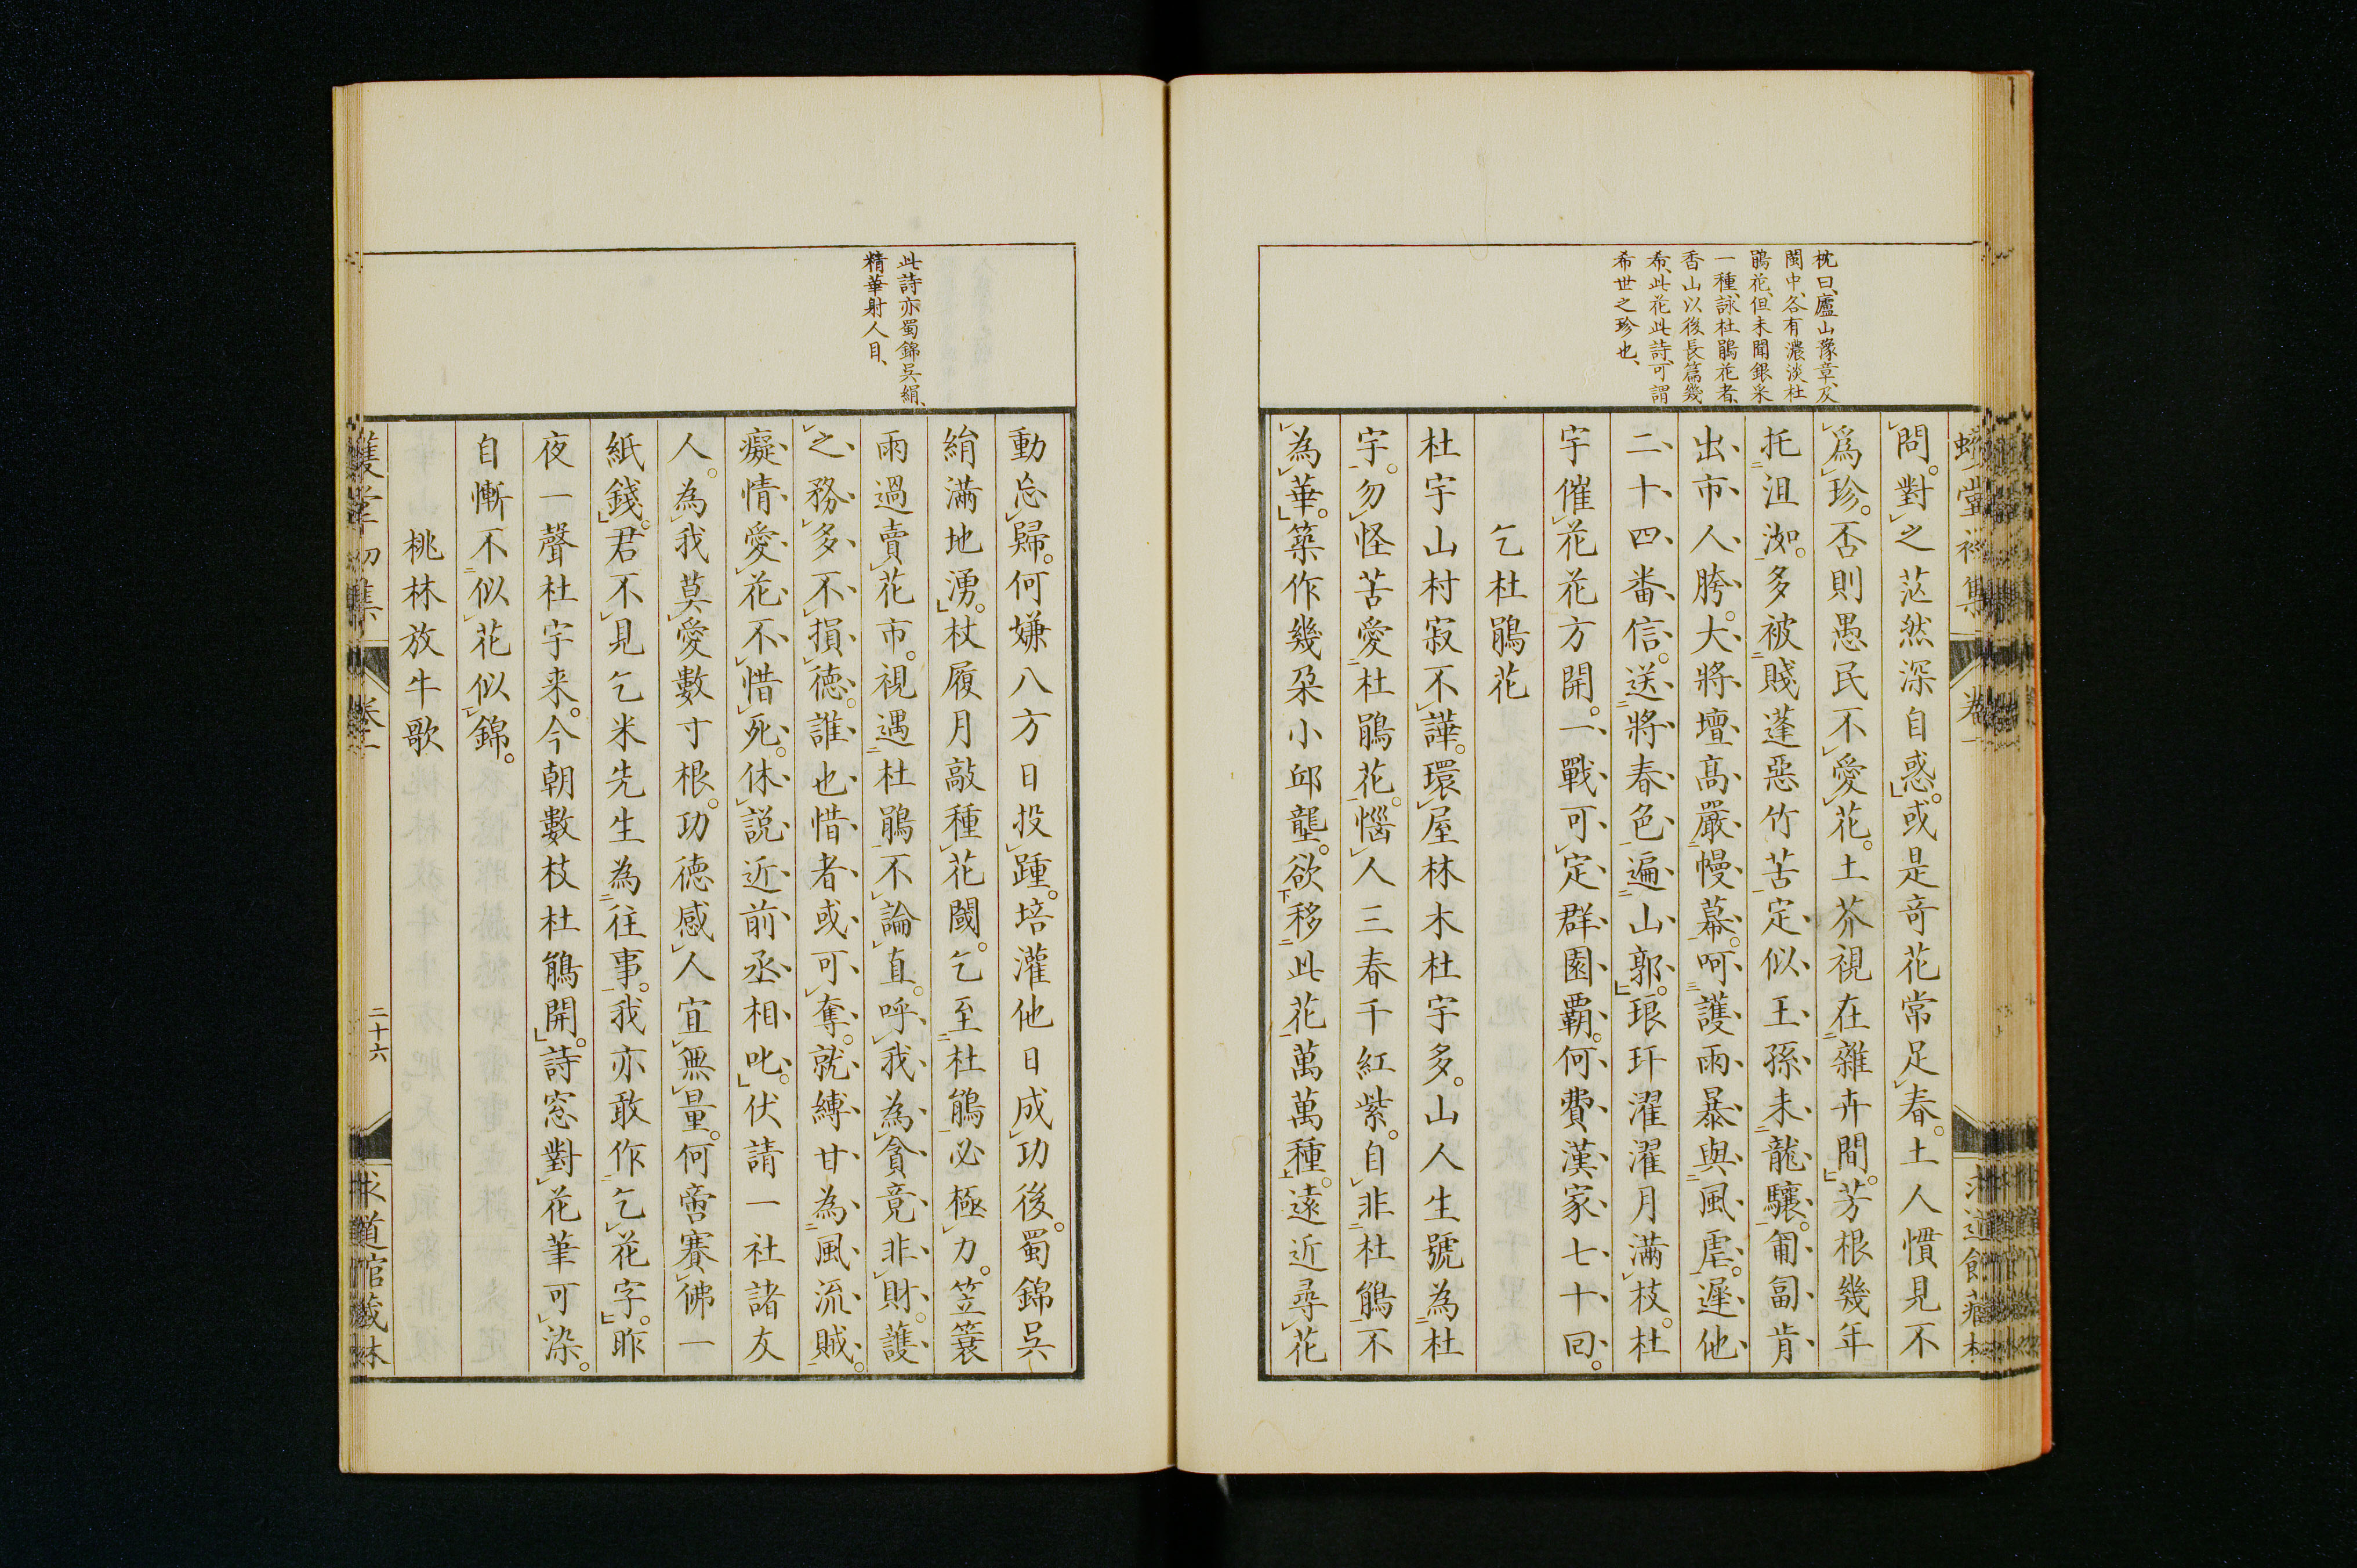 枕曰、廬山豫章、及
閩中、各有濃淡杜
鵑花、但未聞銀采
一種、詠杜鵑花者、
香山以後長篇幾
希、此花此詩、可謂
希世之珍也、
問。對之茫然深自惑。或是奇花常足春。土人慣見不
爲珍。否則愚民不愛花。土芥視在雜卉間。芳根幾年
托沮洳。多被賤蓬惡竹苦。定似王孫未龍驤。匍匐肯
出市人胯。大將壇高嚴幔幕。呵護雨暴與風虐。遲他
二十四番信。送將春色遍山郭。琅玕濯濯月滿枝。杜
宇催花花方開。一戰可定群園覇。何費漢家七十回。
乞杜鵑花
杜宇山村寂不譁。環屋林木杜宇多。山人生號為杜
宇。勿怪苦愛杜鵑花。惱人三春千紅紫。自非杜鵑不
為華。築作幾朶小邱壟。欲移此花萬萬種。遠近尋花
此詩亦蜀錦吳絹、
精華射人目、
動忘歸。何嫌八方日投踵。培灌他日成功後。蜀錦吳
絹滿地湧。杖履月敲種花閾。乞至杜鵑必極力。笠簑
雨過賣花市。視遇杜鵑不論直。呼我為貪竟非財。護
之務多不損德。誰也惜者或可奪。就縛甘為風流賊。
癡情愛花不惜死。休説近前丞相叱。伏請一社諸友
人。為我莫愛數寸根。功德感人宜無量。何啻賽佛一
紙錢。君不見乞米先生為往事。我亦敢作乞花字。昨
夜一聲杜宇来。今朝數枝杜鵑開。詩窓對花筆可染。
自慚不似花似錦。
桃林放牛歌
二十六